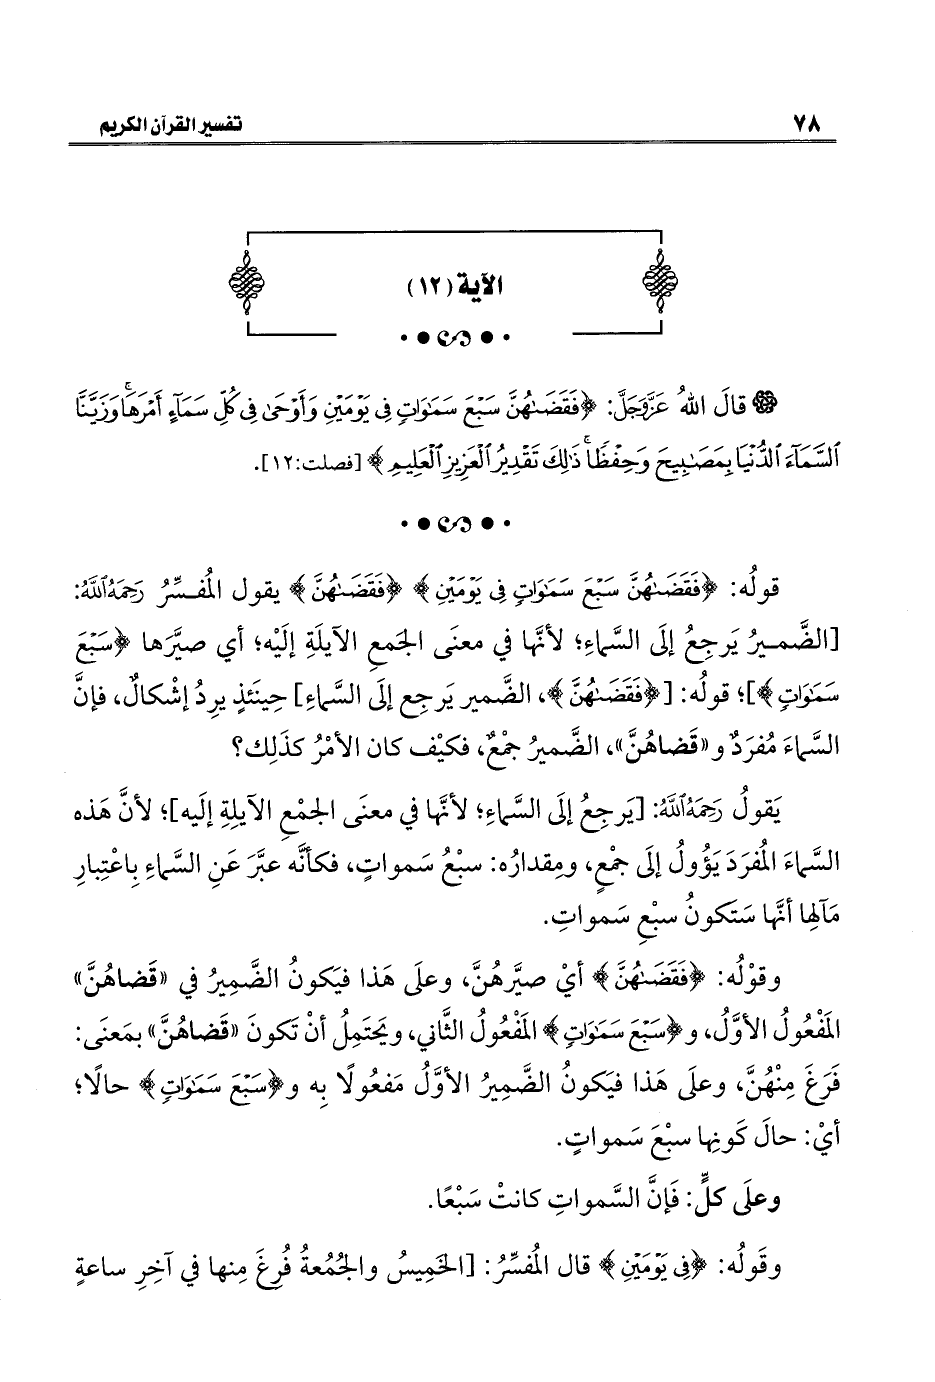 ٧٨ تفسير القرآن الكريم
الآية (١٢)
قالَ اللهُ عَزَّوَجَلَّ: ﴿فَقَضَىٰهُنَّ سَبْعَ سَمَٰوَاتٍ فِى يَوْمَيْنِ وَأَوْحَىٰ فِى كُلِّ سَمَآءٍ أَمْرَهَا ۚ وَزَيَّنَّا
ٱلسَّمَآءَ ٱلدُّنْيَا بِمَصَٰبِيحَ وَحِفْظًا ۚ ذَٰلِكَ تَقْدِيرُ ٱلْعَزِيزِ ٱلْعَلِيمِ﴾ [فصلت:١٢].
قولُه: ﴿فَقَضَىٰهُنَّ سَبْعَ سَمَٰوَاتٍ فِى يَوْمَيْنِ﴾ ﴿فَقَضَىٰهُنَّ﴾ يقول المُفسِّرُ رَحِمَهُ ٱللَّهُ:
[الضَّميرُ يَرجِعُ إلَى السَّماءِ؛ لأنَّها في معنَى الجَمعِ الآيلَةِ إلَيْه؛ أي صيَّرَها ﴿سَبْعَ
سَمَٰوَاتٍ﴾]؛ قولُه: [﴿فَقَضَىٰهُنَّ﴾، الضَّمير يَرجِع إلَى السَّماءِ] حِينَئذٍ يرِدُ إشْكالٌ، فإنَّ
السَّماءَ مُفرَدٌ و«قَضاهُنَّ»، الضَّميرُ جمْعٌ، فكيْف كان الأمْرُ كذَلِك؟
يَقولُ رَحِمَهُ ٱللَّهُ: [يَرجِعُ إلَى السَّماءِ؛ لأنَّها في معنَى الجمْعِ الآيلِةِ إلَيه]؛ لأنَّ هَذه
السَّماءَ المُفرَدَ يَؤُولُ إلَى جمْعٍ، ومِقدارُه: سبْعُ سَمواتٍ، فكأنَّه عبَّرَ عَنِ السَّماءِ بِاعْتِبارِ
مَآلِها أنَّها سَتَكونُ سبْعِ سَمواتِ.
وقوْلُه: ﴿فَقَضَىٰهُنَّ﴾ أيْ صيَّرهُنَّ، وعلَى هَذا فيَكونُ الضَّمِيرُ في «قَضاهُنَّ»
المَفْعُولُ الأوَّلُ، و﴿سَبْعَ سَمَٰوَاتٍ﴾ المَفْعُولُ الثَّاني، ويَحتَمِلُ أنْ تَكونَ «قَضاهُنَّ» بمَعنَى:
فَرَغَ مِنْهُنَّ، وعلَى هَذا فيَكونُ الضَّميرُ الأوَّلُ مَفعُولًا بِه و﴿سَبْعَ سَمَٰوَاتٍ﴾ حالًا؛
أيْ: حالَ كَونِها سبْعَ سَمواتٍ.
وعلَى كلٍّ: فَإنَّ السَّمواتِ كانتْ سَبْعًا.
وقَولُه: ﴿فِى يَوْمَيْنِ﴾ قال المُفسِّرُ: [الخَمِيسُ والجُمُعةُ فُرِغَ مِنها في آخِرِ ساعةٍ